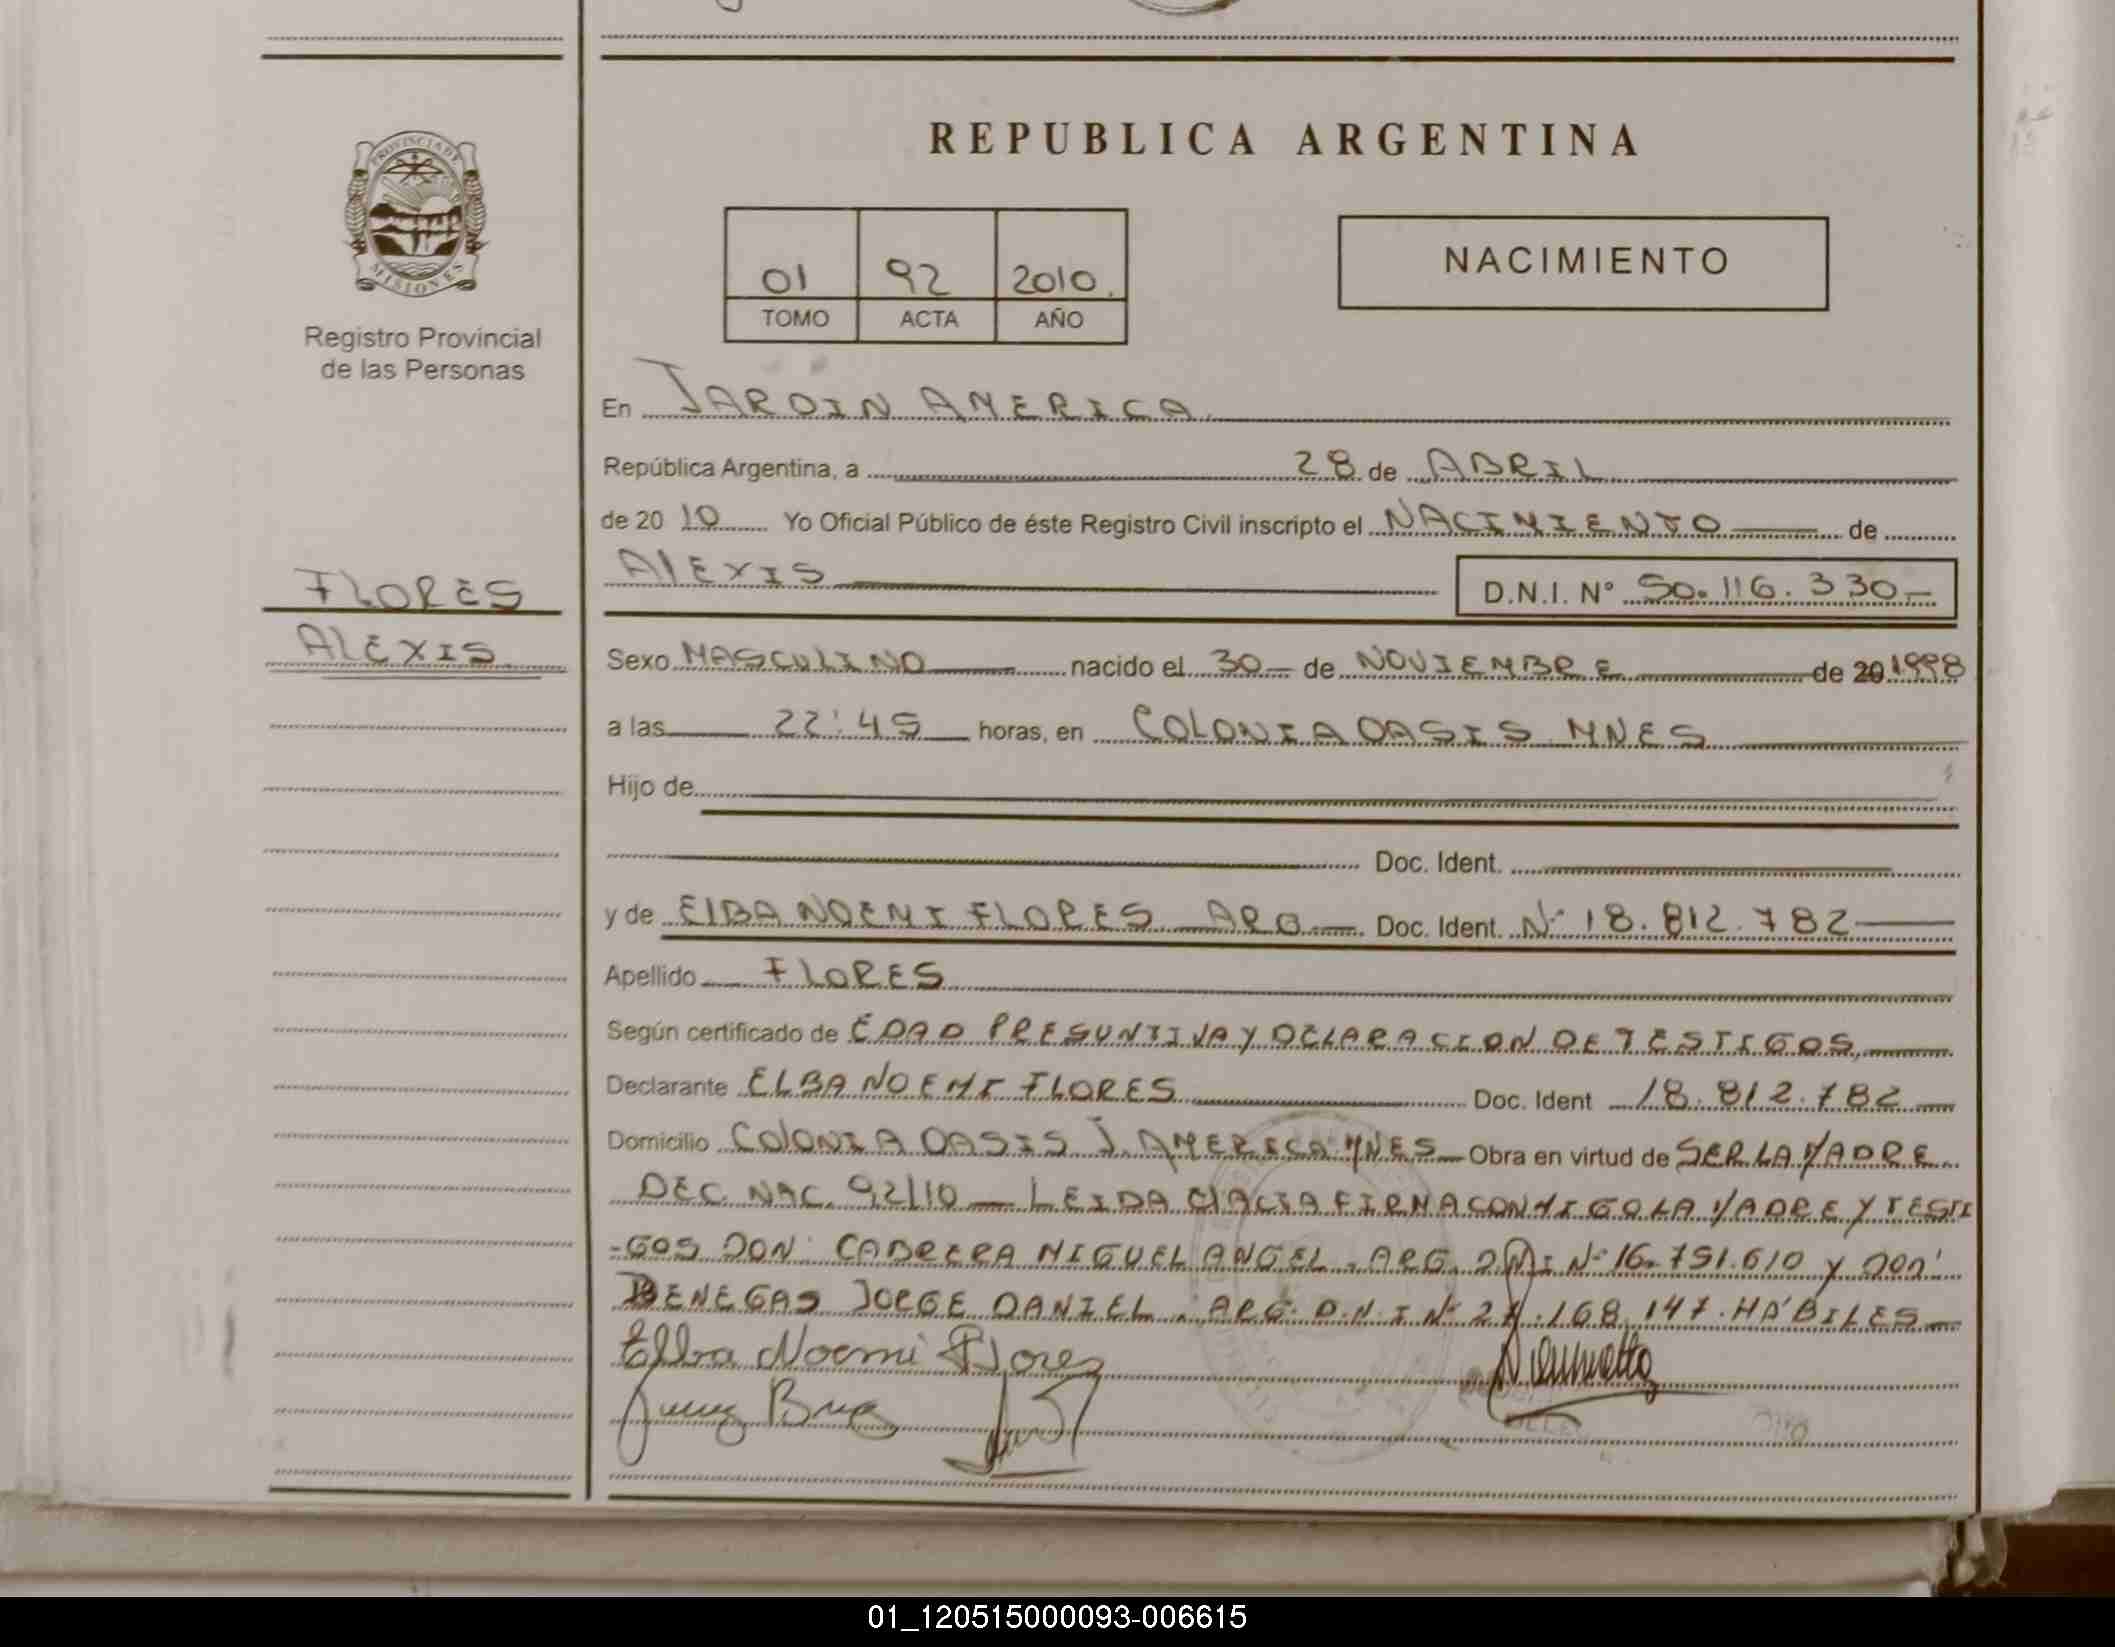 REPUBLICA ARGENTINA
PROVINCIA DE
MISIONES
Registro Provincial
de las Personas
01 92 2010.
TOMO ACTA AÑO
NACIMIENTO
En JARDIN AMERICA
República Argentina, a 28 de ABRIL
de 20 10 Yo Oficial Público de éste Registro Civil inscripto el NACIMIENTO de
AlEXIS D.N.I. N° 50.116.330
FLORES
ALEXIS
Sexo MASCULINO nacido el 30 de NOVIEMBRE de 20 1998
a las 22:45 horas, en COLONIA OASIS MNES
Hijo de
Doc. Ident.
y de ElBA NOEMI FLORES ARG Doc. Ident. N° 18.812.782
Apellido FLORES
Según certificado de EDAD PRESUNTIVA Y DECLARACION DE TESTIGOS,
Declarante ELBA NOEMI FLORES Doc. Ident 18.812.782
Domicilio COLONIA OASIS J. AMERICA MNES Obra en virtud de SER LA MADRE
DEC. NAC. 92/10 LEIDA EL ACTA FIRMA CONMIGO LA MADRE Y TESTI
-GOS DON: CABRERA MIGUEL ANGEL. ARG. DNI N° 16.751.610 Y DON:
BENEGAS JORGE DANIEL. ARG. D.N.I N° 27.168.147. HÁBILES
Elba Noemi Flores
01_120515000093-006615